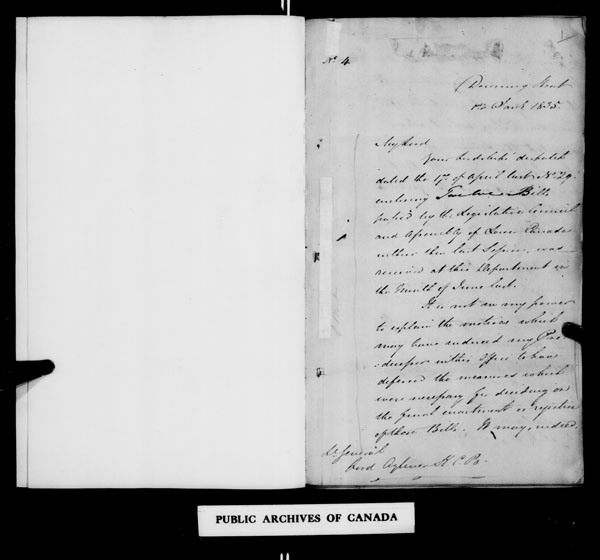 1
No. 4
Downing Street
1835
My Lord
Your Lordship's dispatch
dated the 17th of April last No. 29
enclosing Twelve Bills
passed by the Legislative Council
and Assembly of Lower Canada
within their last Session, was
received at this Department in
the month of June last.
It is not in my power
to explain the motives which
may have induced my Pre-
-decessor in this Office to have
deferred the measures which
were necessary for deciding on
the final enactment or rejection
of those Bills. It may, indeed
Lt. General
Lord Aylmer K.C.B.
PUBLIC ARCHIVES OF CANADA